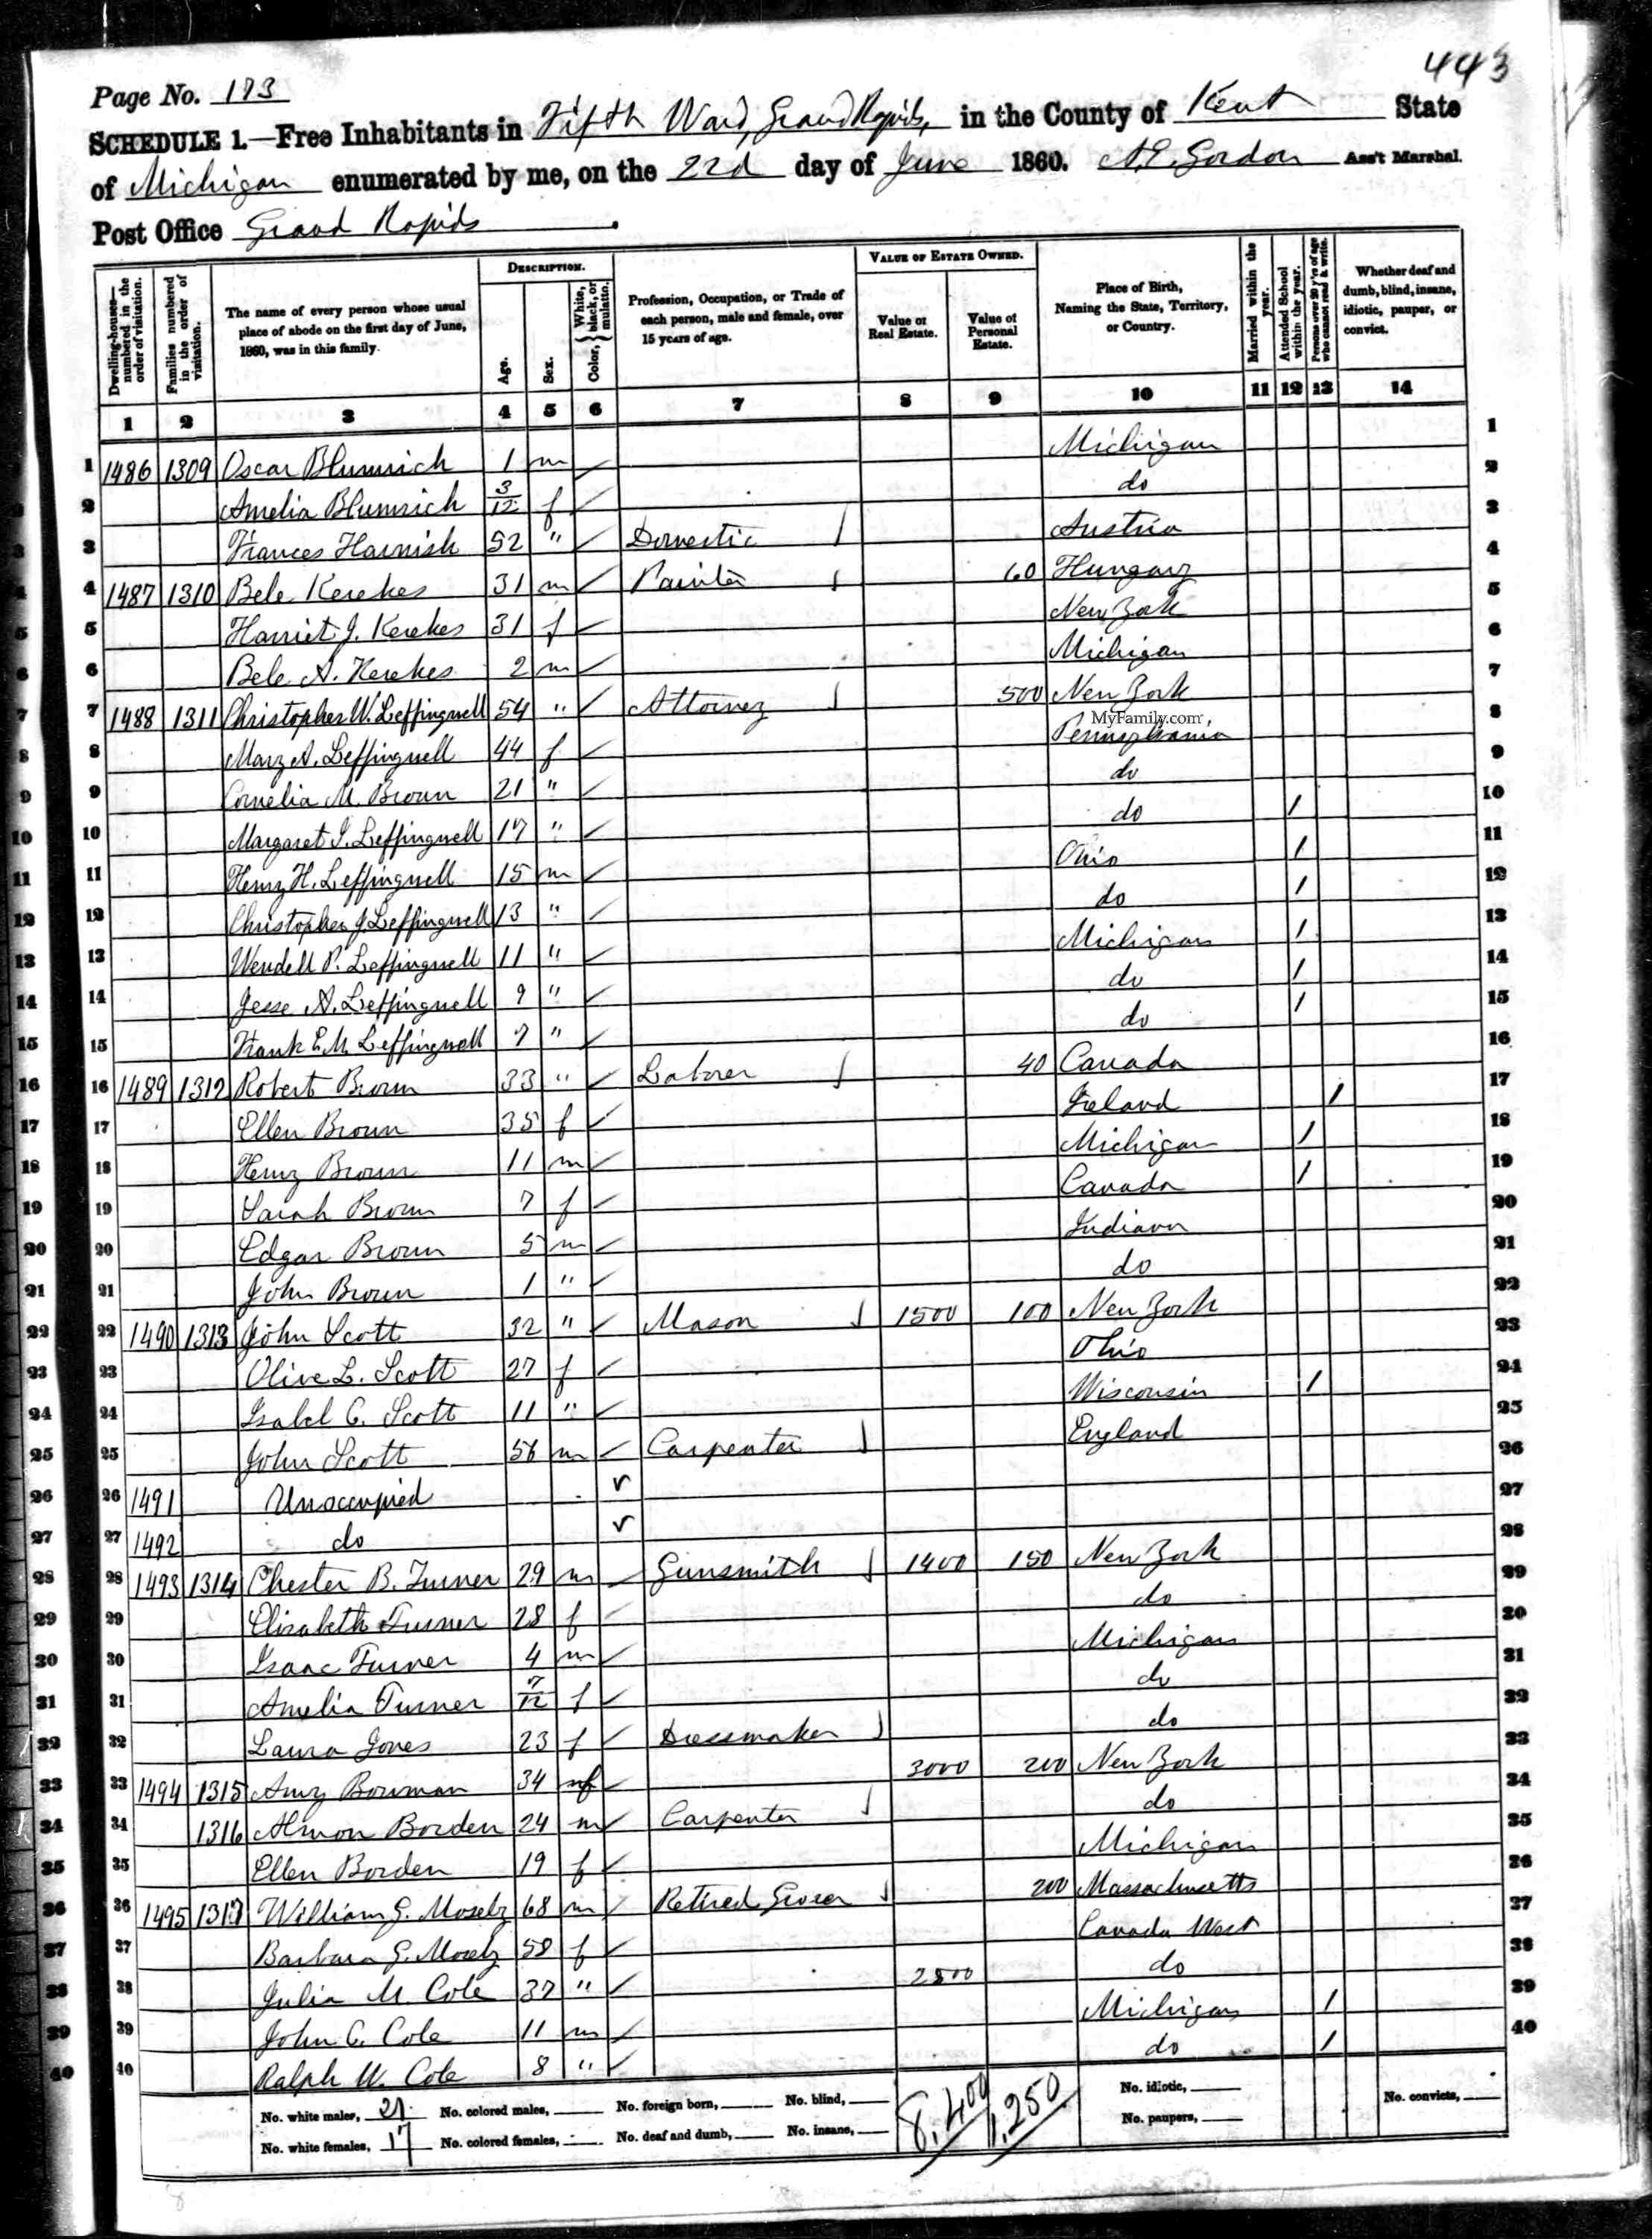 443
Page No. 173
SCHEDULE 1.—Free Inhabitants in Fifth Ward, Grand Rapids, in the County of Kent State
of Michigan enumerated by me, on the 22d day of June 1860. A. E. Gordon Ass't Marshal.
Post Office Grand Rapids.
Dwelling-house—numbered in the order of visitation. Families numbered in the order of visitation. The name of every person whose usual place of abode on the first day of June, 1860, was in this family. DESCRIPTION. Age. Sex. Color, { White, black, or mulatto. Profession, Occupation, or Trade of each person, male and female, over 15 years of age. VALUE OF ESTATE OWNED. Value of Real Estate. Value of Personal Estate. Place of Birth, Naming the State, Territory, or Country. Married within the year. Attended School within the year. Persons over 20 y'rs of age who cannot read & write. Whether deaf and dumb, blind, insane, idiotic, pauper, or convict.
1 2 3 4 5 6 7 8 9 10 11 12 13 14
1 1486 1309 Oscar Blumrich 1 m Michigan 1
2 Amelia Blumrich 3/12 f do 2
3 Frances Harnish 52 " Domestic Austria 3
4 1487 1310 Bele Kerekes 31 m Painter 60 Hungary 4
5 Harriet J. Kerekes 31 f New York 5
6 Bele A. Kerekes 2 m Michigan 6
7 1488 1311 Christopher W. Leffingwell 54 " Attorney 500 New York 7
MyFamily.com
8 Mary A. Leffingwell 44 f Pennsylvania 8
9 Cornelia M. Brown 21 " do 9
10 Margaret I. Leffingwell 17 " do / 10
11 Henry H. Leffingwell 15 m Ohio / 11
12 Christopher J. Leffingwell 13 " do / 12
13 Wendell P. Leffingwell 11 " Michigan / 13
14 Jesse A. Leffingwell 9 " do / 14
15 Frank E. M. Leffingwell 7 " do / 15
16 1489 1312 Robert Brown 33 " Laborer 40 Canada 16
17 Ellen Brown 35 f Ireland / 17
18 Henry Brown 11 m Michigan / 18
19 Sarah Brown 7 f Canada / 19
20 Edgar Brown 5 m Indiana 20
21 John Brown 1 " do 21
22 1490 1313 John Scott 32 " Mason 1500 100 New York 22
23 Olive L. Scott 27 f Ohio 23
24 Isabel C. Scott 11 " Wisconsin / 24
25 John Scott 56 m Carpenter England 25
26 1491 Unoccupied 26
27 1492 do 27
28 1493 1314 Chester B. Turner 29 m Gunsmith 1400 150 New York 28
29 Elizabeth Turner 28 f do 29
30 Isaac Turner 4 m Michigan 30
31 Amelia Turner 7/12 f do 31
32 Laura Jones 23 f Dressmaker do 32
33 1494 1315 Amy Bowman 34 f 3000 200 New York 33
34 1316 Almon Borden 24 m Carpenter do 34
35 Ellen Borden 19 f Michigan 35
36 1495 1317 William G. Mosely 68 m Retired Grocer 200 Massachusetts 36
37 Barbara G. Mosely 58 f Canada West 37
38 Julia M. Cole 37 " 2500 do 38
39 John C. Cole 11 m Michigan / 39
40 Ralph W. Cole 8 " do / 40
No. white males, 21 No. colored males, No. foreign born, No. blind, 8,400 1,250 No. idiotic, No. convicts,
No. white females, 17 No. colored females, No. deaf and dumb, No. insane, No. paupers,